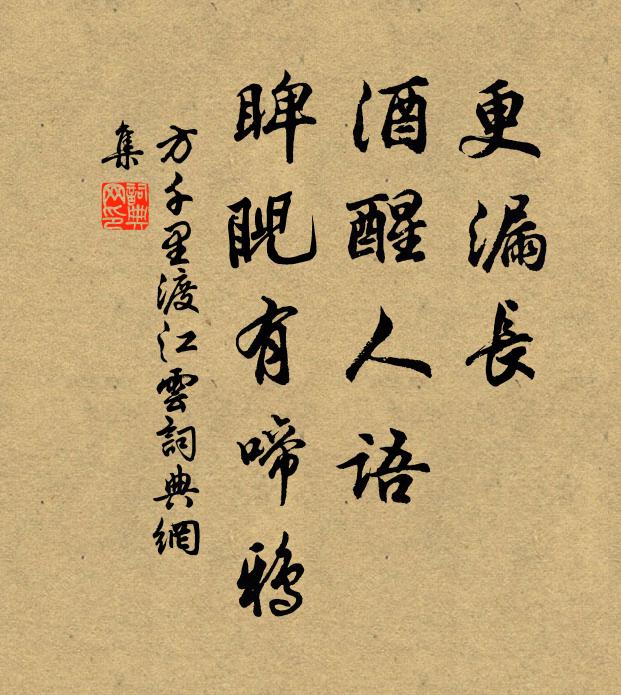 更漏長
酒醒人語
睥睨有啼鴉
方千里渡江雲詞典網
集
詞典
网印